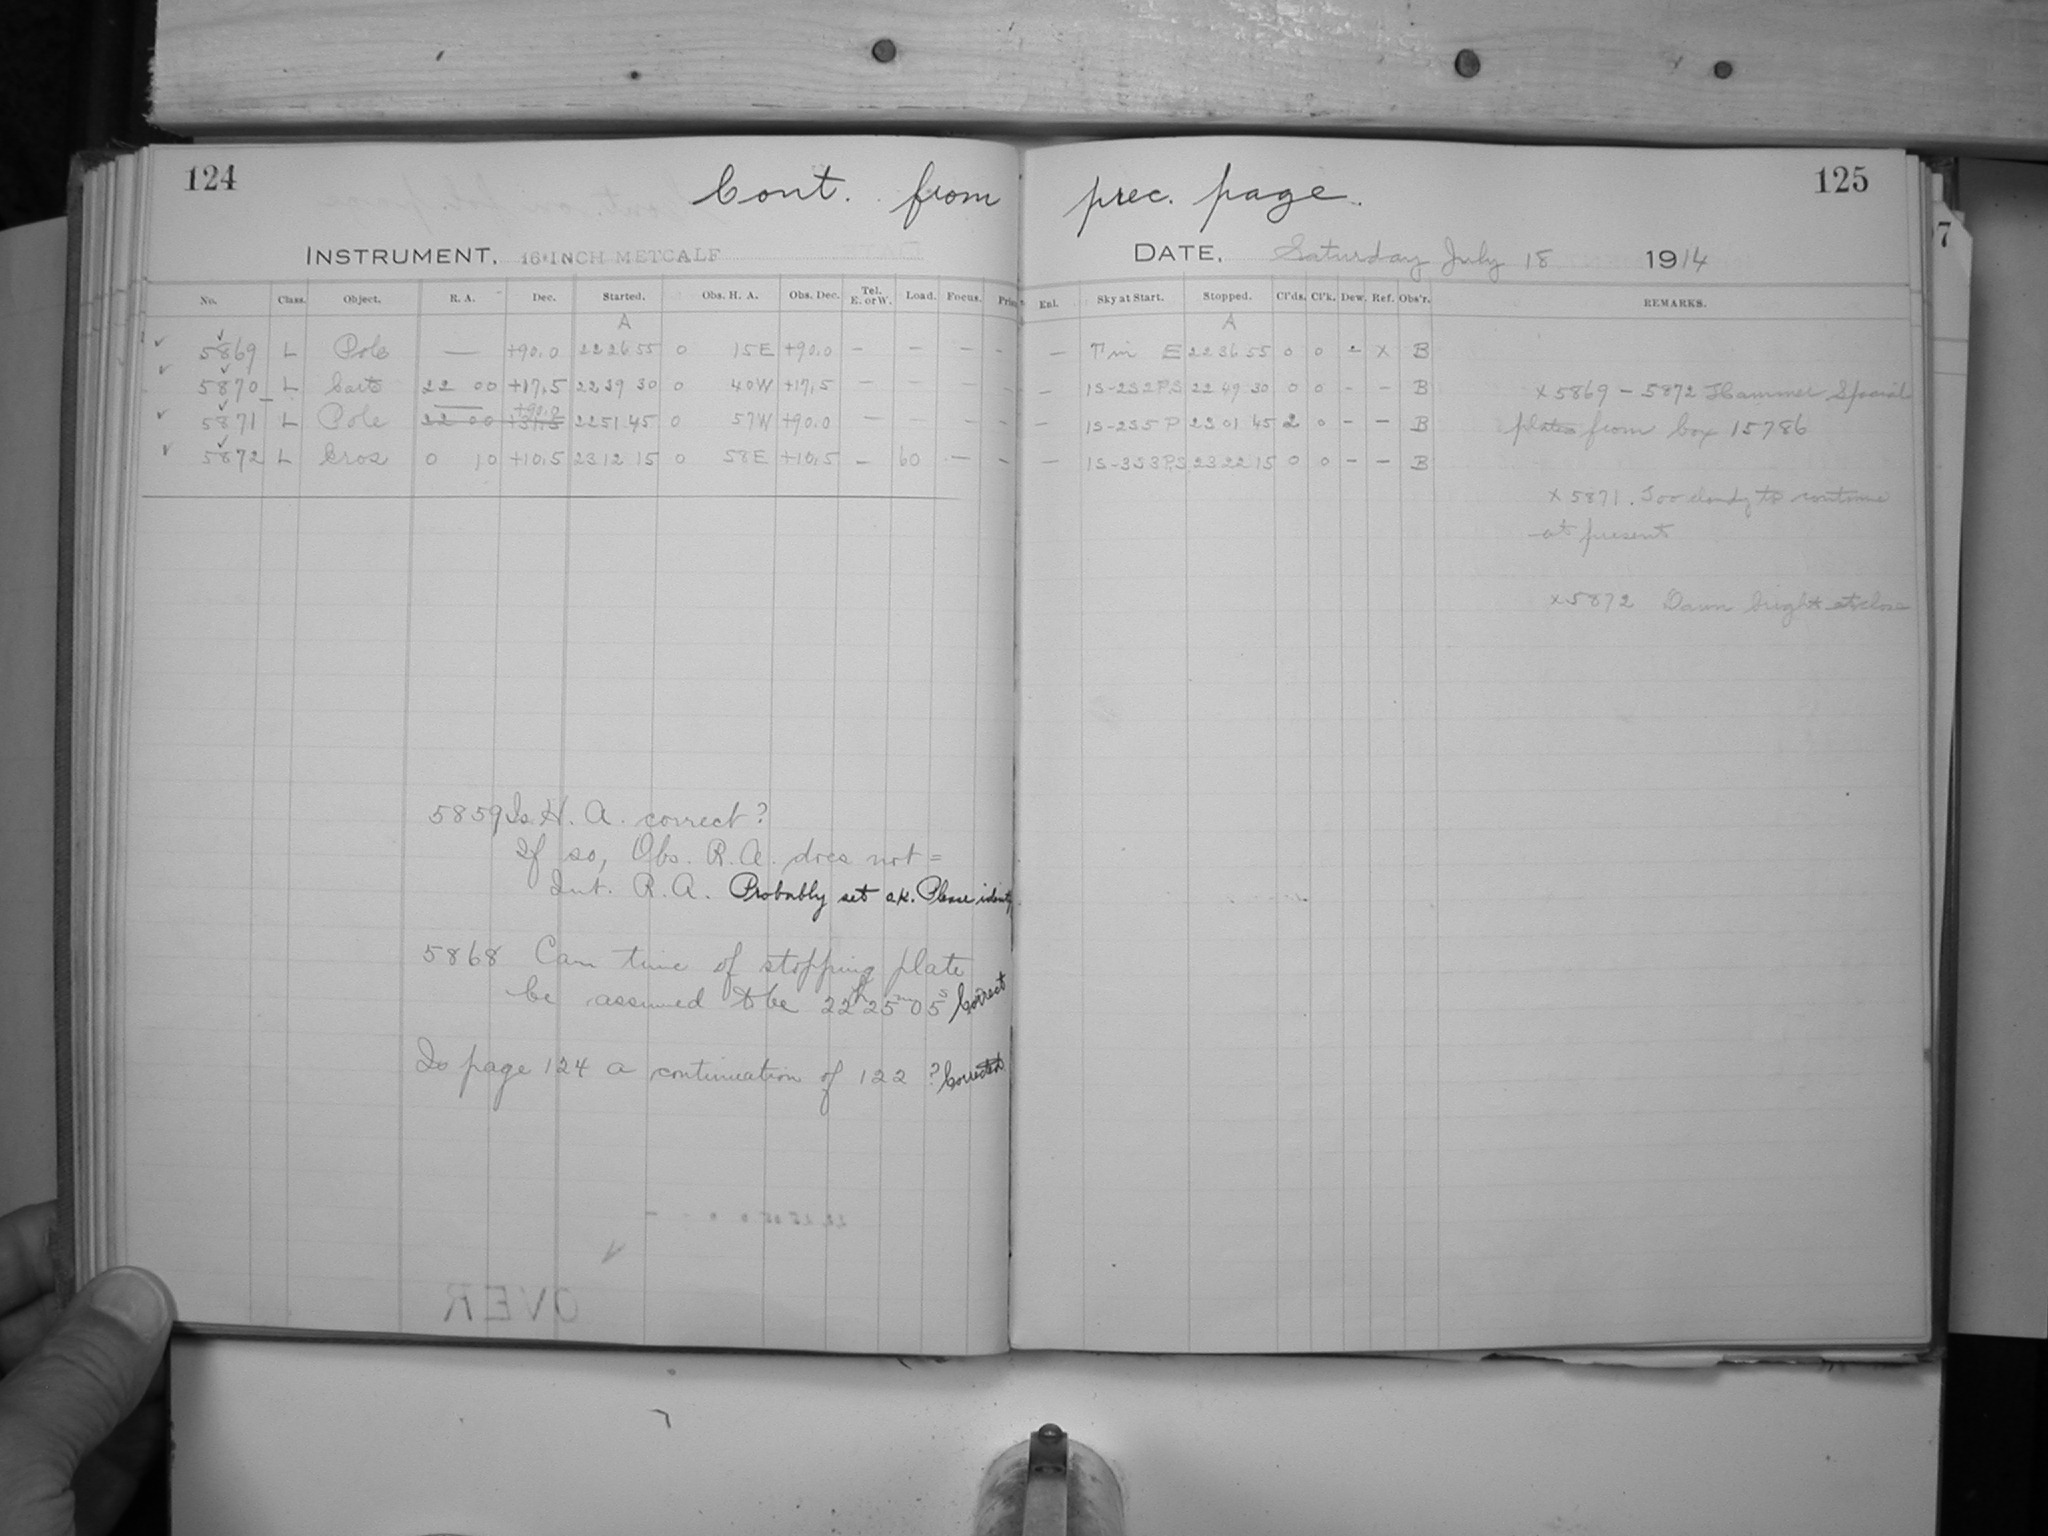 124
Cont. from prec. page.
125
INSTRUMENT. 16-INCH METCALF
DATE. Saturday July 18 1914
No. Class. Object. R. A. Dec. Started. Obs. H. A. Obs. Dec. Tel. E. or W. Load. Focus. Enl. Sky at Start. Stopped. Cl'ds. Cl'k. Dew. Ref. Obs'r. REMARKS.
A A
5869 L Pole — +90.0 22 26 55 0 15E +90.0 — — — — — E 22 36 55 0 0 2 X B
5870 L 22 00 +17.5 22 39 30 0 40W +17.5 — — — — — 1S-2S2P.S 22 49 30 0 0 - - B
x 5869 - 5872 Hammer Special
5871 L Pole 22 00 +90.0 22 51 45 0 57W +90.0 — — — — — 1S-2S5 P 23 01 45 2 0 - - B
plates from box 15786
5872 L 0 10 +10.5 23 12 15 0 58E +10.5 — 60 — — — 1S-3S3P.S 23 22 15 0 0 - - B
x 5871. Too cloudy to continue
at present
x 5872 Dawn bright at close
5859 Is H. A. correct?
If so, Obs. R. A. does not =
Int. R. A. Probably set o.k. Please
5868 Can time of stopping plate
be assumed to be 22h 25m 05s Correct
Is page 124 a continuation of 122 ?
OVER
7